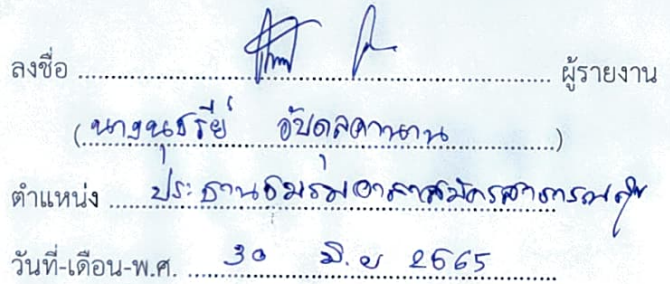 ลงชื่อ ........................ ผู้รายงาน
(นางนุชรีย์ อับดุลคานาน)
ตำแหน่ง ประธานชมรมอาสาสมัครสาธารณสุข
วันที่-เดือน-พ.ศ. 30 มิ.ย 2565